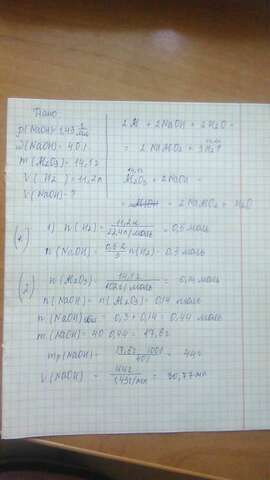 Дано:
ρ(NaOH)=1,43 г/мл
ω(NaOH)=40%
m(Al₂O₃)=14,1г
V(H₂)=11,2л
V(NaOH)=?
2Al + 2NaOH + 2H₂O =
= 2NaAlO₂ + 3H₂↑
Al₂O₃ + 2NaOH =
= 2NaAlO₂ + H₂O
1) n(H₂) = 11,2л / 22,4л/моль = 0,5 моль
n(NaOH) = 0,5·2 / 3 n(H₂) = 0,3 моль
2) n(Al₂O₃) = 14,1г / 102г/моль = 0,14 моль
n(NaOH) = n(Al₂O₃) = 0,14 моль
n(NaOH) общ = 0,3 + 0,14 = 0,44 моль
m(NaOH) = 40·0,44 = 17,6г
mр(NaOH) = 17,6·100% / 40% = 44г
V(NaOH) = 44г / 1,43г/мл = 30,77мл